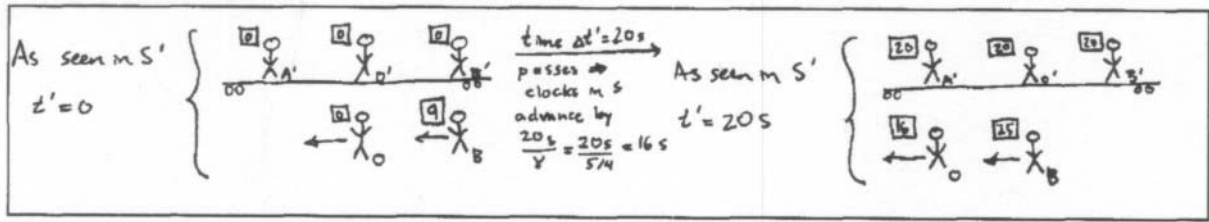 As seen in S'
t' = 0
0 0 0
A' O' B'
0 9
O B
time Δt' = 20s
passes
clocks in S
advance by
20s/γ = 20s/5/4 = 16 s
As seen in S'
t' = 20 s
20 20 20
A' O' B'
16 25
O B